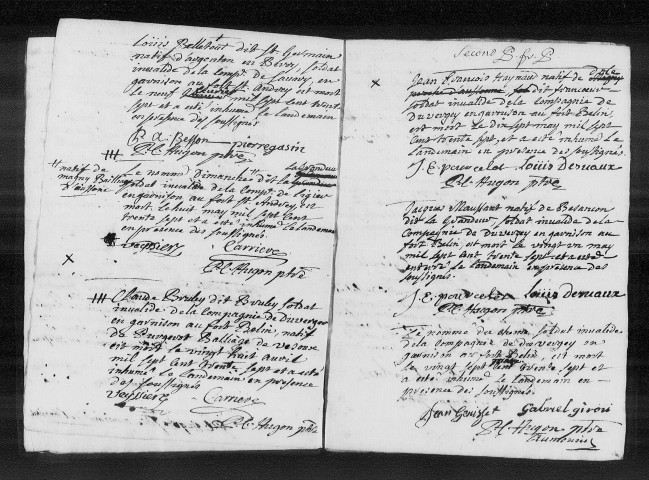 Louis Bellebout dit St Germain
natif d'argenton en Berry, soldat
invalide de la Comp.e de Launay en
garnison au fort St Andrey est mort
le neuf mil sept cent trente
sept et a eté inhumé le landemain
en presence des soussignés
R. a. Besson pierregasin
P.C. hugon ptre
natif de
Le nommé Dimanche dit la Grandeur
soldat invalide de la Comp.e de Ligier
en garnison au fort St Andrey, est
mort le huit may mil sept Cent
trente sept et a eté inhumé le landemain
en presence des soussignés
Veissiere Carriere
P.C. hugon ptre
Claude Bruley dit Bruley soldat
invalide de la Compagnie de Duverger
en garnison au fort Belin, natif
de Bourguet Balliage de Vesoux
est mort le vingt huit avril
mil sept Cent trente sept et a eté
inhumé le landemain en presence
des soussignés
Veissiere Carriere
P.C. hugon ptre
Second B. fr. B
Jean François haymand natif de Dole
dit francoeur
soldat invalide de la Compagnie
de Duvergey en garnison au fort Belin,
est mort le dix sept may mil sept
cent trente sept, et a eté inhumé le
landemain en presence des soussignés.
J. C. pourcelot Louis Devuaux
P.C. hugon ptre
Jacques Maussant natif de Besancon
dit la Grandeur soldat invalide de la
Compagnie de Duvergey en garnison au
fort Belin, est mort le vingt un may
mil sept Cent trente sept et a eté
enterré le landemain en presence des
soussignés
J. C. pourcelot Louis Devuaux
P.C. hugon ptre
Le nommé du chene soldat invalide
de la compagnie de duvergey en
garnison au fort Belin, est mort
le vingt sept cent trente sept et
a eté inhumé le landemain en
presence des soussignés.
Jean Gouisset Gabriel girou
P.C. hugon ptre
aumonier